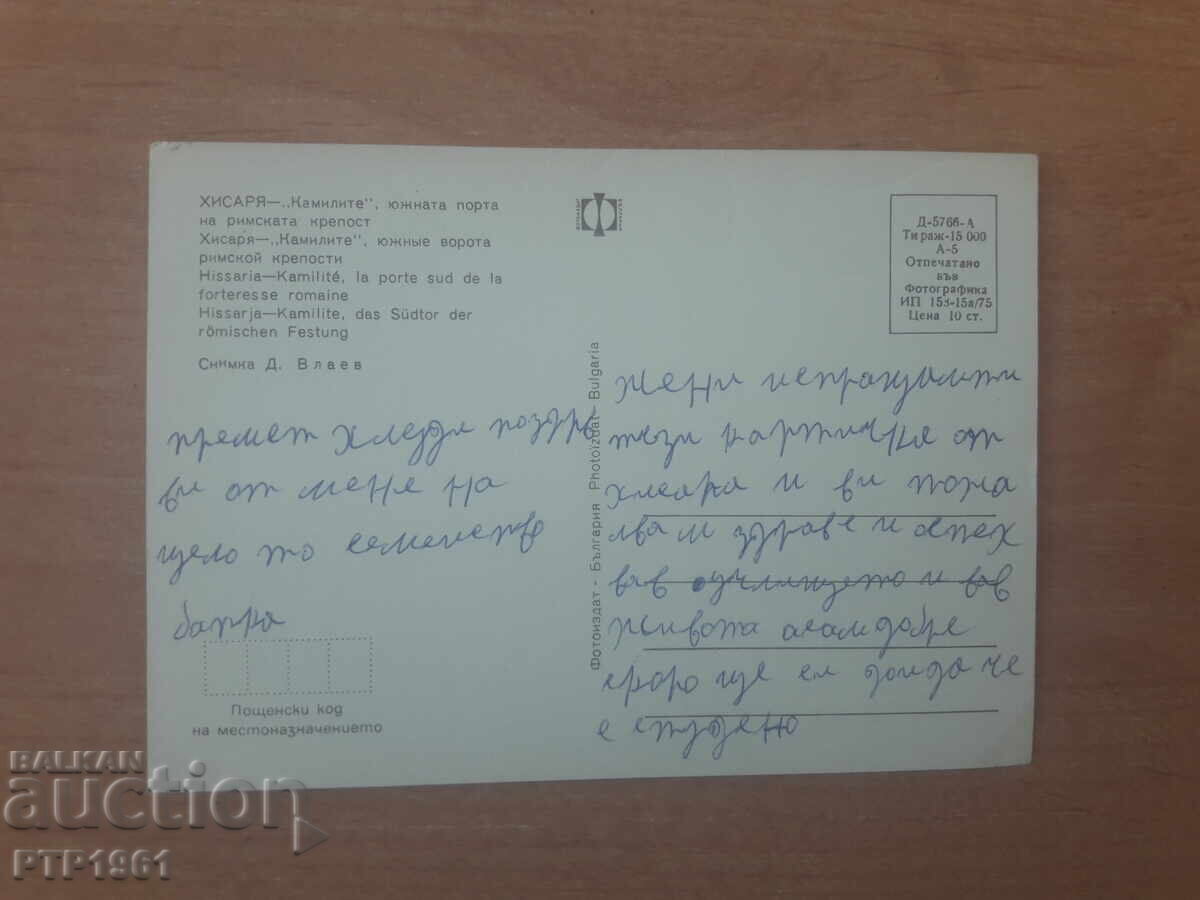 ХИСАРЯ—„Камилите“, южната порта
на римската крепост
Хисаря—„Камилите“, южные ворота
римской крепости
Hissaria—Kamilité, la porte sud de la
forteresse romaine
Hissarja—Kamilite, das Südtor der
römischen Festung
Снимка Д. Влаев
Д-5766-А
Тираж-15 000
А-5
Отпечатано
във
Фотографика
ИП 153-15а/75
Цена 10 ст.
Фотоиздат - България Photoizdat - Bulgaria
Жени
тези картичка от
и ви пожа
лвам здраве и оспех
вав очлището и вав
живота асам добре
скоро ще си доида че
е стздено
поздра
ви от мене на
цело то семеиство
Пощенски код
на местоназначението
BALKAN
auction
PTP1961